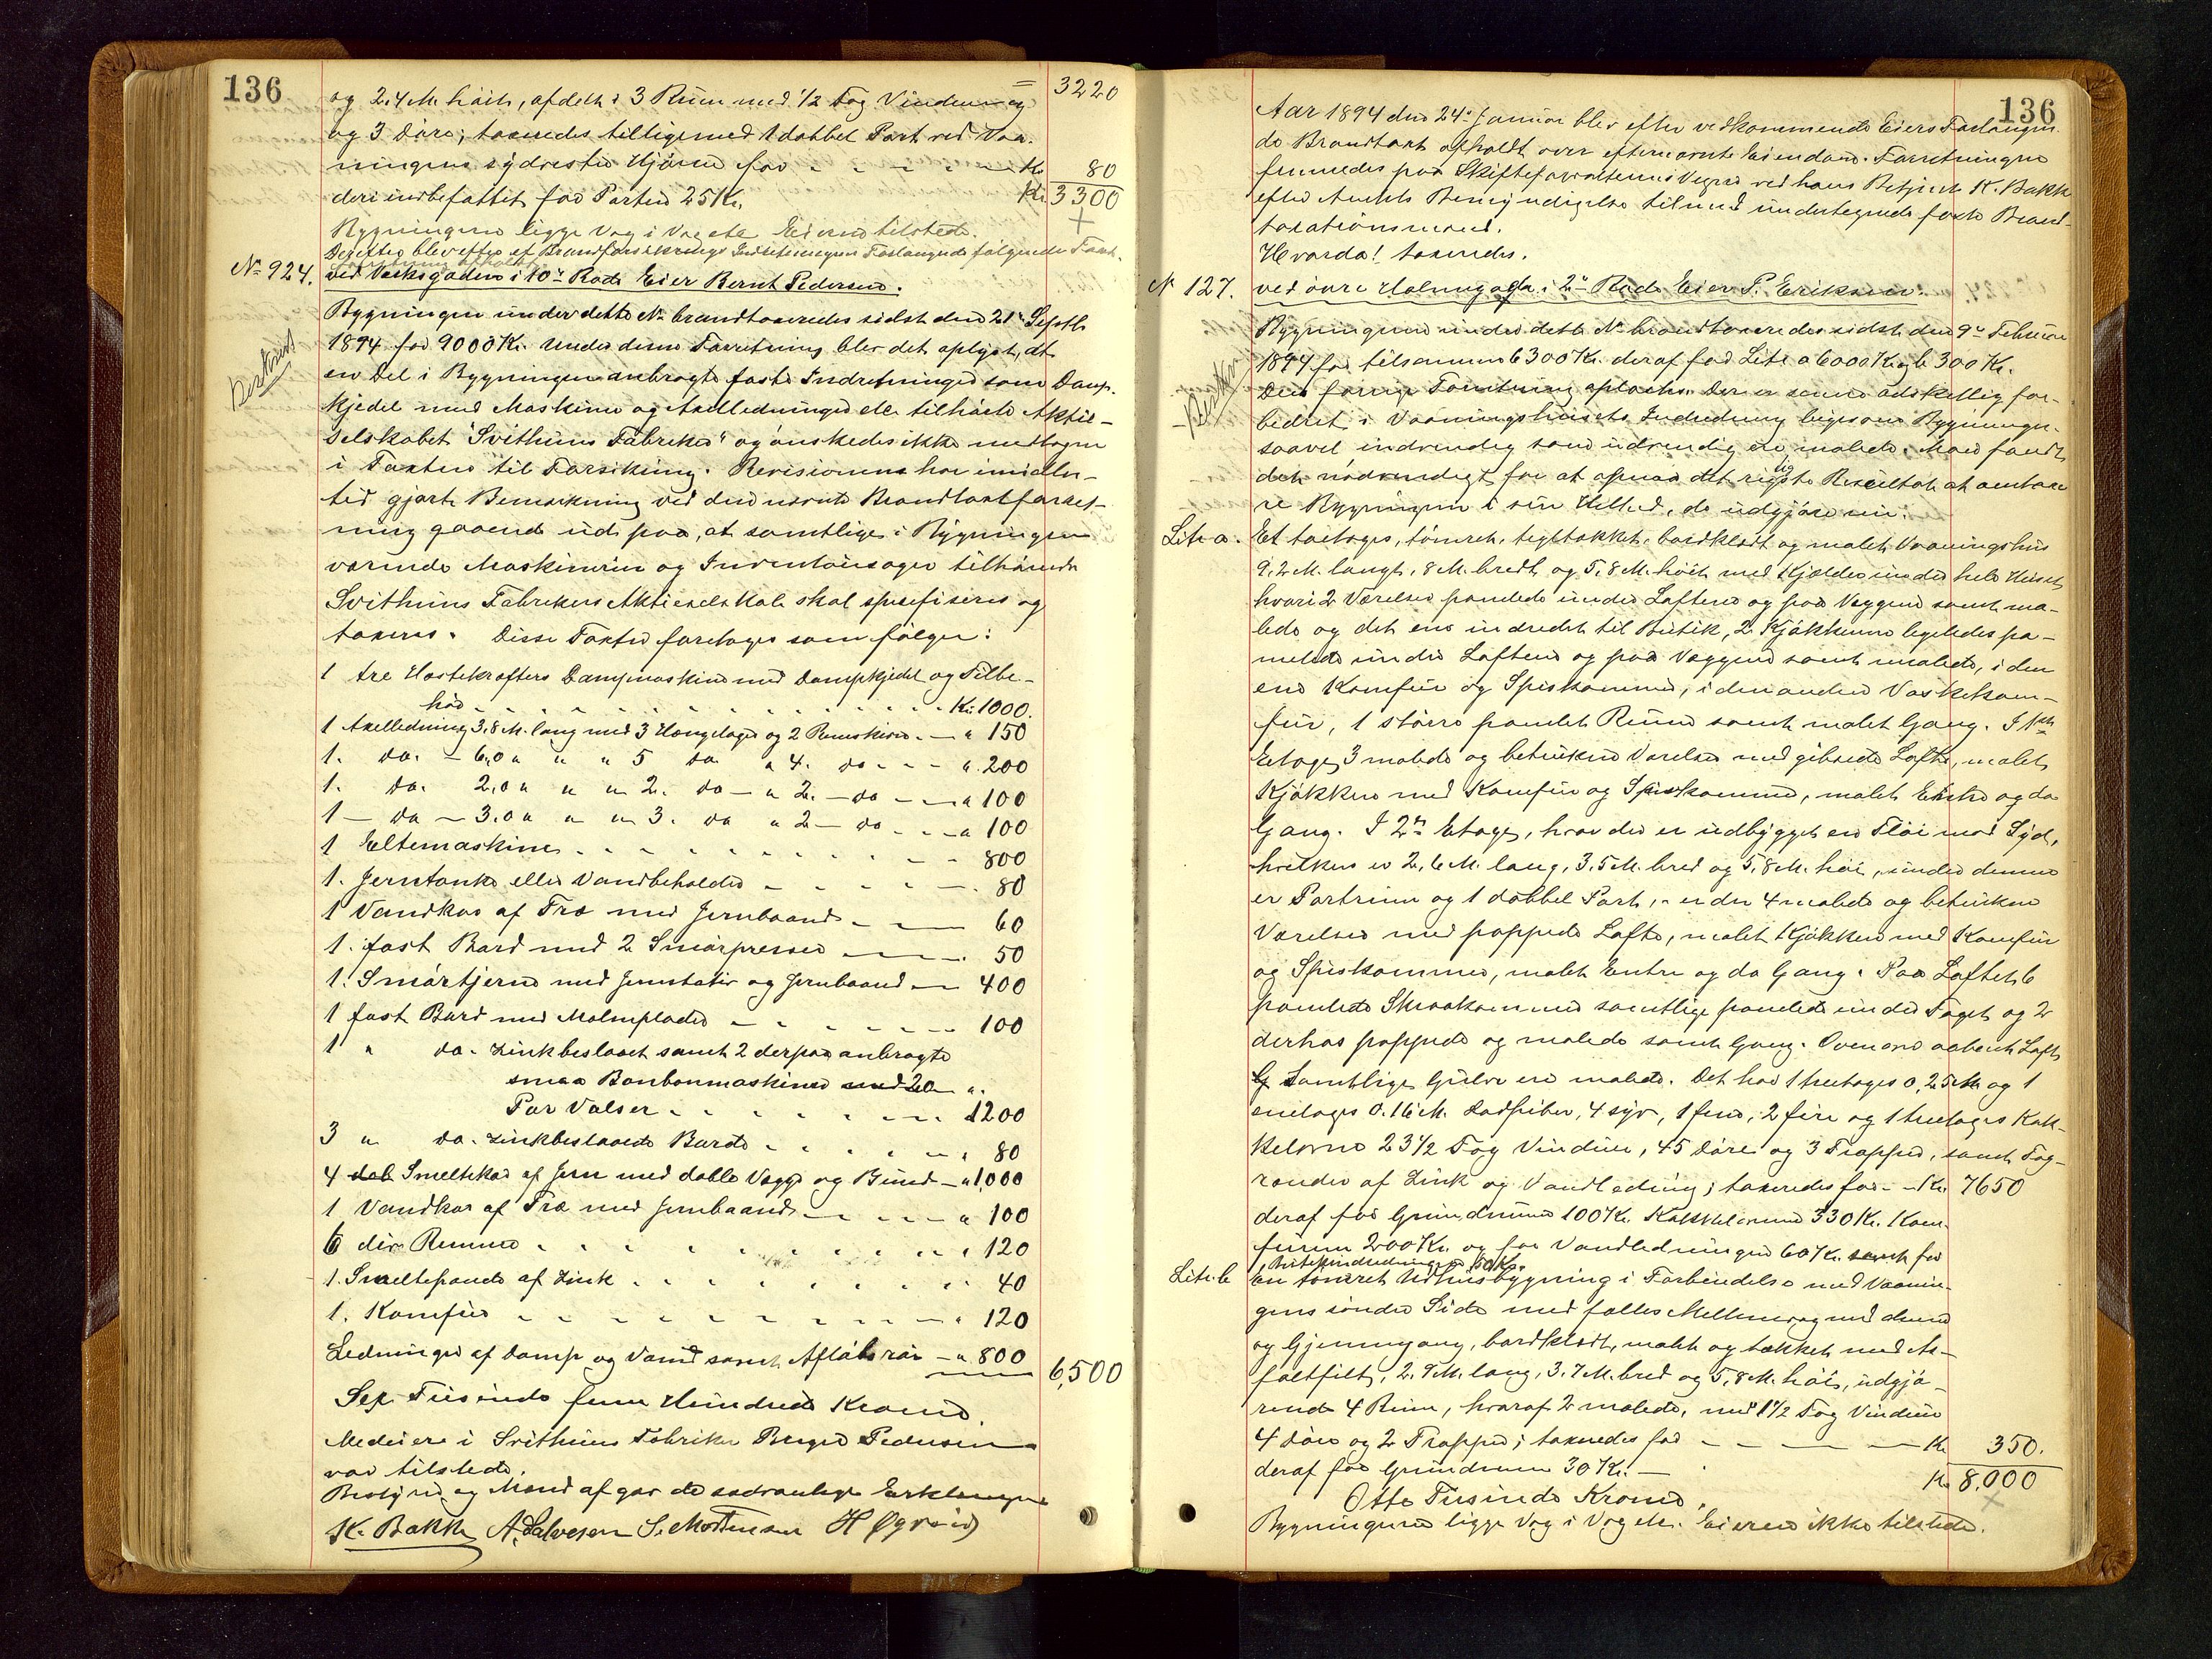 136
og 2.4 M. höit, afdelt i 3 Rum med 1/2 Fag Vinduer og = 3220
og 3 Döre; taxeredes tilligemed 1 dobbel Port ved Vaa-
ningens sydvestre Hjörne for - - - - Kr. 80
deri indbefattet for Porten 25 Kr. Kr. 3300
Bygningerne ligge Væg i Væg etc. Eieren tilstede.
Derefter blev efter af Brandforsikrings Indretningens Forlangende følgende Taxt-
forretning afholdt
No 924. ved Verksgaden i 10de Rode Eier Bernt Pedersen.
Bygningen under dette No brandtaxeredes sidst den 21de Septb.
1894 for 9000 Kr. Under denne Forretning blev det oplyst, at
en Del i Bygningen anbragte faste Indretninger som Damp-
kjedel med Maskine og Axelledninger etc. tilhörte Aktie-
selskabet "Svithuns Fabriker" og önskedes ikke medtagen
i Taxten til Forsikring. Revisionen har imidler-
tid gjort Bemærkning ved den nævnte Brandtaxtforret-
ning gaaende ud paa, at samtlige i Bygningen
værende Maskinerier og Inventarsager tilhörende
Svithuns Fabrikers Aktieselskab skal spesifiseres og
taxeres. Disse Taxter foretages som fölger:
1 tre Hestekrafters Dampmaskine med Dampkjedel og Tilbe-
hör - - - - - - Kr. 1000.
1 Axelledning 3.8 M. lang med 3 Hængelager og 2 Remskiver - - " 150
1. do. - 6.0 " " " 5 do " 4. do - - - ". 200
1. do. 2.0 " " " 2. do - " 2. - do - - " 100
1 - do - 3.0 " " " 3. do " 2 - do - - - " 100
1 Eltemaskine - - - - - - 800
1. Jerntank eller Vandbeholder - - - - - 80
1 Vandkar af Træ med Jernbaand - - - 60
1. fast Bord med 2 Smörpresser - - - 50
1. Smörtjerne med Jernstativ og Jernbaand - - 400
1 fast Bord med Malmplader - - - - - 100
1 " do. Zinkbeslaaet samt 2 derpaa anbragte
smaa Bonbonmaskiner med 20 ".
Par Valser - - - - - - - 1200
3 " do. Zinkbeslaaede Borde - - - - - " 80
4 dob Smeltekar af Jern med doble Vægge og Bund - " 1,000
1 Vandkar af Træ med Jernbaand - - - - " 100
6 div Remmer - - - - - - - " 120
1. Smeltepande af Zink - - - - - - " 40
1. Komfur - - - - - - - - " 120
Ledninger af Damp og Vand samt Aflöbsrör - " 800 6,500
Sex Tusinde fem Hundrede Kroner.
Medeiere i Svithuns Fabriker Berger Pedersen
var tilstede.
Bestyrer og Mænd afgav de sædvanlige Erklæringer
K. Bakke A. Salvesen S. Mortensen H Øgreid
136
Aar 1894 den 24de Januar blev efter vedkommende Eiers Forlangen-
de Brandtaxt afholdt over efternævnte Eiendom. Forretningen
fremmedes paa Skifteforvalterens Vegne ved hans Betjent K. Bakke
efter Amtets Bemyndigelse tilmed undertegnede faste Brand-
taxationsmænd.
Hvorda! taxeredes.
N 127. ved övre Holmegade i 2den Rode Eier P. Eriksen.
Bygningerne under dette No brandtaxeredes sidst den 9de Februar
1894 for tilsammen 6300 Kr. deraf for Litr a 6000 Kr. og b 300 Kr.
Den forrige Forretning oplæstes. Der er senere adskillig for-
bedret i Vaaningshusets Indredning ligesom Bygningen
saavel indvendig som udvendig ere malede. Man fandt
det nödvendigt for at opnaa det rigtige Resultat at omtaxe-
re Bygningen i sin Helhed, de udgjöre nu:
Litr a. Et toetages, tömret, teglstakket, bordklædt og malet Vaaningshus
9.2 M. langt, 8 M. bredt og 5,8 M. höit med Kjælder under hele Huset
hvori 2 Værelser panelede under Loftene og paa Væggene samt ma-
lede og det ene indredet til Butik, 2 Kjökkener ligeledes pa-
nelede under Loftene og paa Væggene samt malede, i den
ene Komfur og Spiskammer, i den anden Vaskekom-
fur, 1 större panelet Rum samt malet Gang. I 1ste
Etage, 3 malede og betrukne Værelser med gibsede Lofte, malet
Kjökken med Komfur og Spiskammer, malet Entre og do
Gang. I 2den Etage, hvor der er udbygget en Flöi mod Syd,
hvilken er 2,6 M. lang, 3.5 M. bred og 5,8 M. höi, under denne
er Portrum og 1 dobbel Port, - er der 4 malede og betrukne
Værelser med pappede Lofte, malet Kjökken med Komfur
og Spiskammer, malet Entre og do Gang. Paa Loftet 6
panelede Skraakammere samtlige panelede under Taget og 2
derhos pappede og malede samt Gang. Ovenover aabent Loft
G Samtlige Gulve ere malede. Det har 1 treetages 0,25 M og 1
enetages 0.16 M. Jordpiber, 4 syv, 1 fem, 2 fire og 1 treetages Kak-
kelovne 23 1/2 Fag Vinduer, 45 Döre og 3 Trapper, samt Tag-
render af Zink og Vandledning; taxeredes for - - Kr. 7650
deraf for Grundmur 100 Kr. Kakkelovnene 330 Kr. Kom-
furene 200 Kr. og for Vandledningen 60 Kr. samt for
Butikindredningen 150 Kr.
Litr. b En tömret Udhusbygning i Forbindelse med Vaanin-
gens söndre Side med fælles Mellemvæg med denne
og Gjennemgang, bordklædt, malt og tækket med As-
faltfilt, 2.9 M. lang, 3.7 M. bred og 5,8 M. höi, udgjö-
rende 4 Rum, hvoraf 2 malede, med 1 1/2 Fag Vinduer
4 Döre og 2 Trapper; taxeredes for - - - - - Kr. 350.
deraf for Grundmur 30 Kr. - Kr. 8,000
Otte Tusinde Kroner.
Bygningerne ligge Væg i Væg etc. Eieren ikke tilstede.